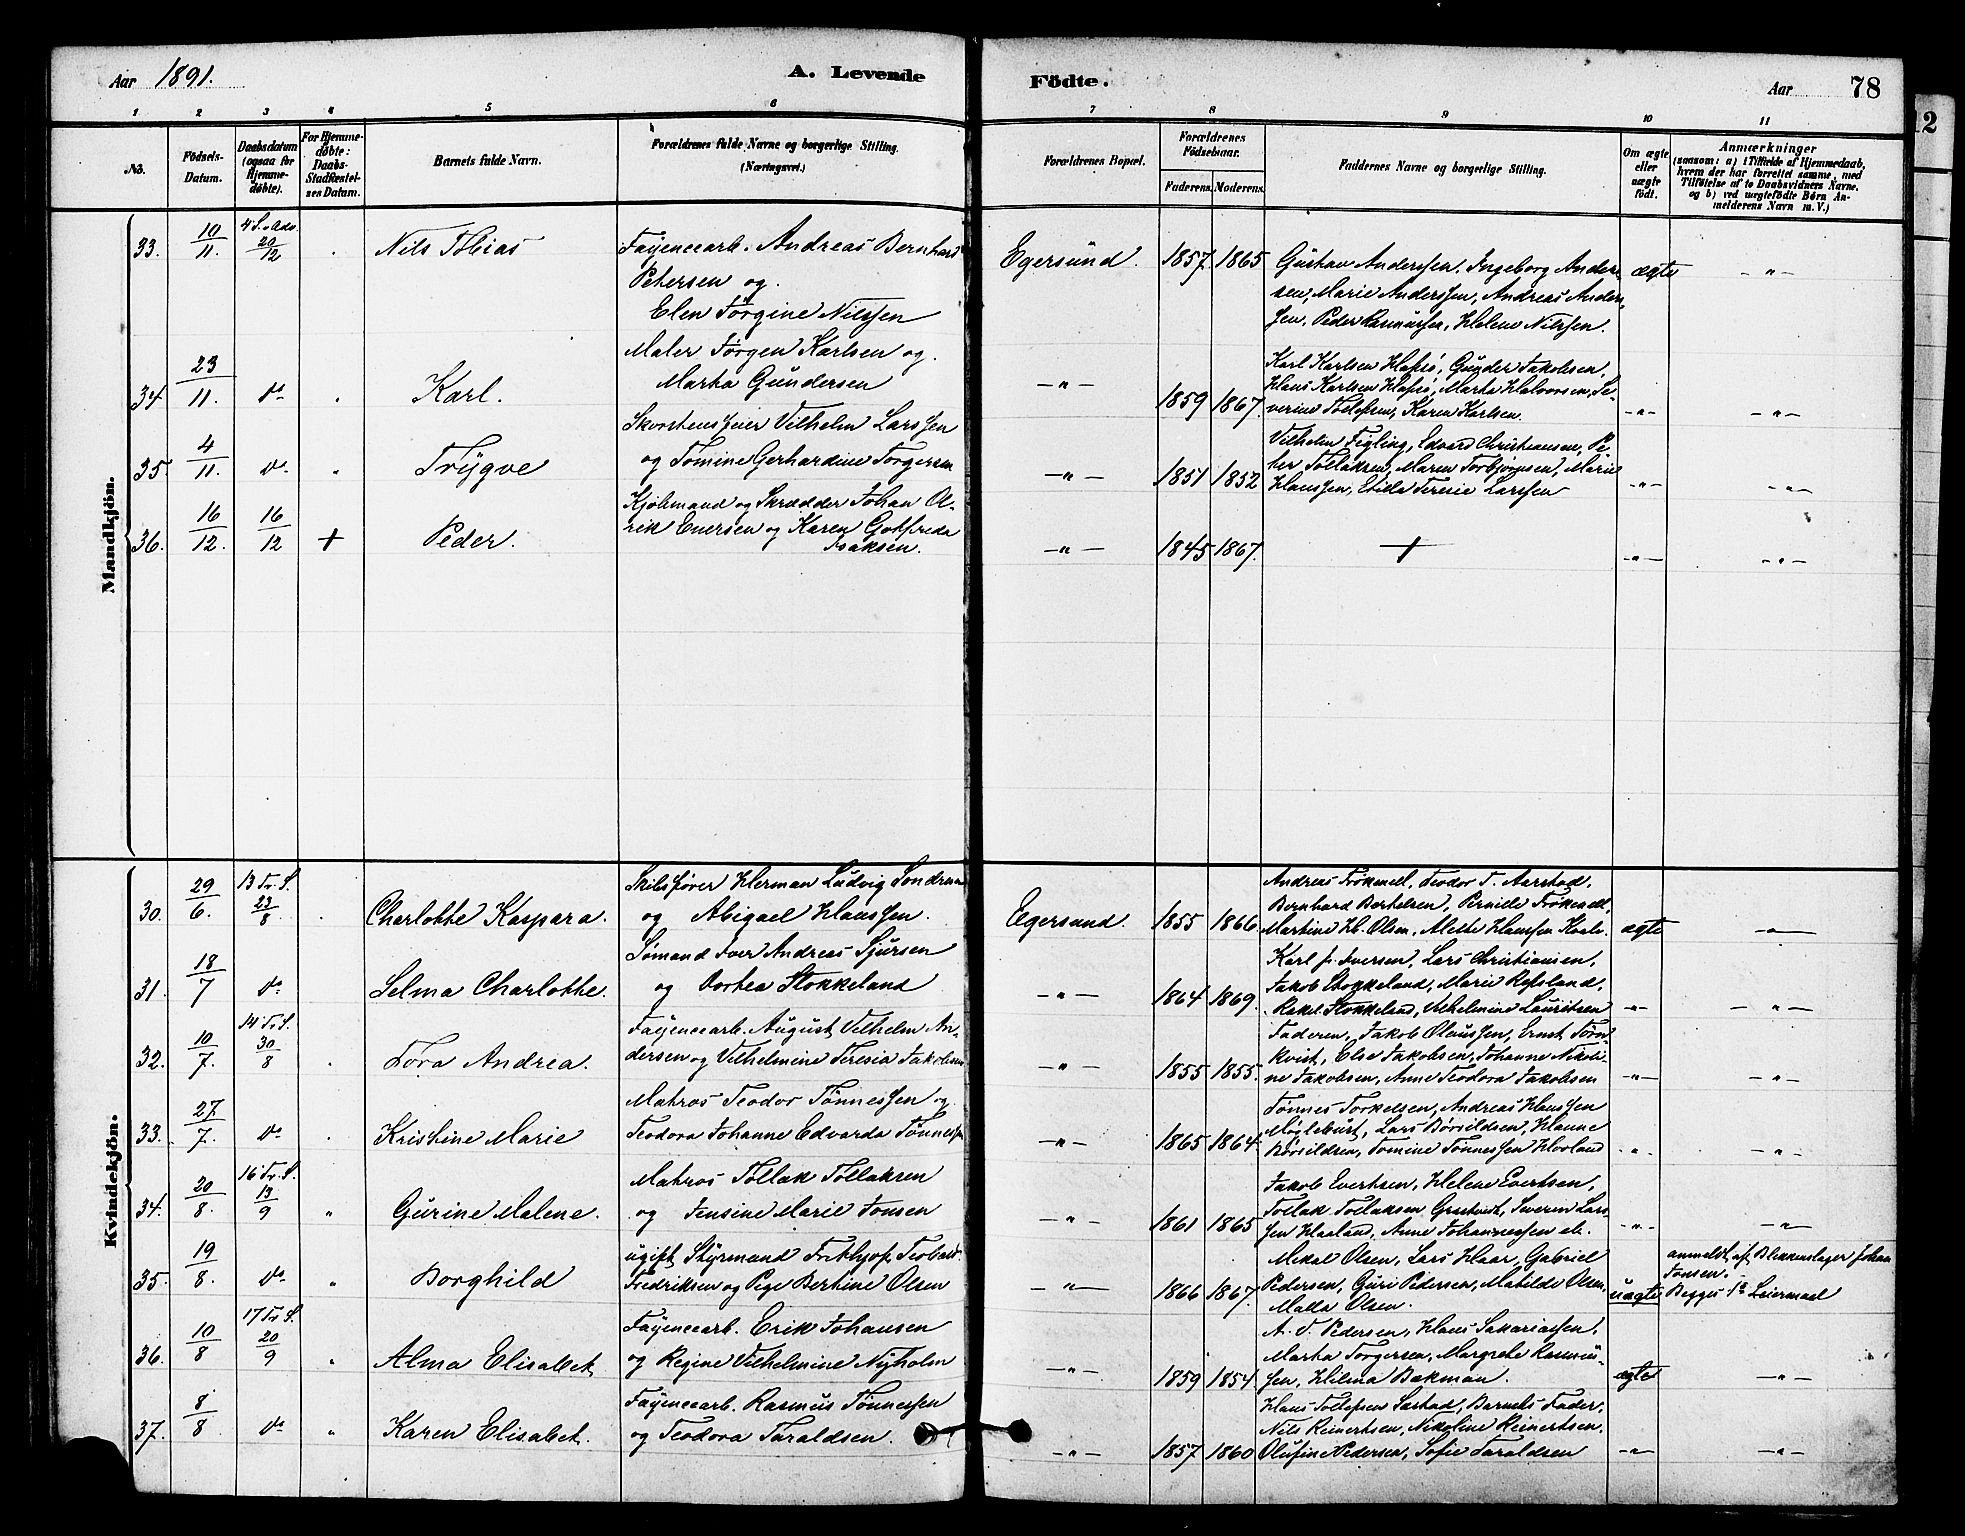 Aar 1891.
A. Levende
Födte.
Aar
78
12
1 2 3 4 5 6 7 8 9 10 11
No.
Födsels-Datum.
Daabsdatum (ogsaa for Hjemme-döbte).
For Hjemme-döbte: Daabs-Stadfæstel-ses Datum.
Barnets fulde Navn.
Forældrenes fulde Navne og borgerlige Stilling.
(Næringsvei.)
Forældrenes Bopæl.
Forældrenes Födselsaar.
Faderens. Moderens.
Faddernes Navne og borgerlige Stilling.
Om ægte eller uægte födt.
Anmærkninger
(saasom: a) i Tilfælde af Hjemmedaab, hvem der har forrettet samme, med Tilföielse af to Daabsvidners Navne, og b) ved uægtefödte Börn Anmelderens Navn m.V.)
Mandkjön.
33. 10/11. 4 S. Adv. 20/12 Nils Tobias
Fayencearb. Andreas Bernhard
Petersen og
Elen Jörgine Nilssen
Egersund. 1857. 1865
Gustav Anderssen, Ingeborg Ander-
sen, Marie Anderssen, Andreas Ander-
sen, Peder Rasmussen, Helene Nilssen.
ægte - " -
34. 23/11. do Karl.
Maler Jörgen Karlsen og
Marta Gundersen
- " - 1859 1867.
Karl Karlsen Hafsö, Gunder Jakobsen,
Hans Karlsen Hafsö, Marta Halvorsen, Se-
verine Tollefsen, Karen Karlsen.
- " - - " -
35. 4/11. do " Trygve
Skorstensfeier Vilhelm Larssen
og Tomine Gerhardine Torgersen
- " - 1851 1852
Vilhelm Figling, Edvard Christiansen, Pe-
ter Tollaksen, Maren Torbjörnsen, Marie
Hanssen, Teresie Larssen
- " - - " -
36. 16/12. 16/12 + Peder.
Kjöbmand og Skrædder Johan Ol-
rik Enersen og Karen Gotfreda
Isaksen.
- " - 1845 1867. + - " - - " -
Kvindekjön.
30. 29/6. 13 Tr. S. 23/8. Charlotte Kaspara.
Skibsförer Herman Ludvig Sondresen
og Abigael Hanssen.
Egersund. 1855 1866
Andreas Frökenell, Teodor T. Aarstad,
Bernhard Bertelsen, Pernille Frökenell,
Martine H. Olsen, Mette Hanssen Kvale.
ægte - " -
31. 18/7 do Selma Charlotte.
Sömand Iver Andreas Sjursen
og Dortea Stokkeland
- " - 1864 1869.
Karl Fr. Iversen, Lars Christiansen,
Jakob Stokkeland, Marie Refsland,
Rakel Stokkeland, Vilhelmine Lauritsen
- " - - " -
32. 10/7. 14 Tr. S. 30/8 Tora Andrea.
Fayencearb. August Vilhelm An-
dersen og Vilhelmine Teresia Jakobsen
- " - 1855 1855.
Faderen, Jakob Olaussen, Ernst Törn-
kvist, Else Jakobsen, Johanne Nikoli-
ne Jakobsen, Anne Teodora Jakobsen
- " - - " -
33. 27/7. do Kristine Marie
Matros Teodor Tönnessen og
Teodora Johanne Edvarda Tönnessen
- " - 1865 1864.
Tönnes Torkelsen, Andreas Hanssen
Möglebust, Lars Börildsen, Hanne
Börildsen, Tomine Tönnessen Hovland
- " - - " -
34. 20/8. 16 Tr. S. 13/9 " Gurine Malene.
Matros Tollak Tollaksen
og Jensine Marie Jonsen
- " - 1861 1865
Jakob Evertsen, Helene Evertsen,
Tollak Tollaksen, Severin Lars-
sen Haaland, Anne Johannessen
- " - - " -
35. 19/8. do " Borghild
ugift Styrmand Frithjof Teobald
Fredriksen og Pige Bertine Olsen
- " - 1866 1867.
Mikal Olsen, Lars Haar, Gabriel
Pedersen, Guri Pedersen, Matilde Olsen,
Malla Olsen.
uægte
anmeldt af Blikkenslager Johan
Jonsen.
Begges 1ste Leiermaal
36. 10/8 17 Tr. S. 20/9 " Alma Elisabet
Fayencearb. Erik Johansen
og Regine Vilhelmine Nyholm
- " - 1859 1854
A. V. Pedersen, Hans Sakariassen,
Marta Torgersen, Margrete Rasmus-
sen, Hilma Bakman.
ægte - " -
37. 8/8 do " Karen Elisabet.
Fayencearb. Rasmus Tönnessen
og Teodora Taraldsen.
- " - 1857 1860
Hans Tollefsen Sæstad, Barnets Fader,
Nils Reinertsen, Nikoline Reinertsen.
Olufine Pedersen, Sofie Taraldsen
- " - - " -